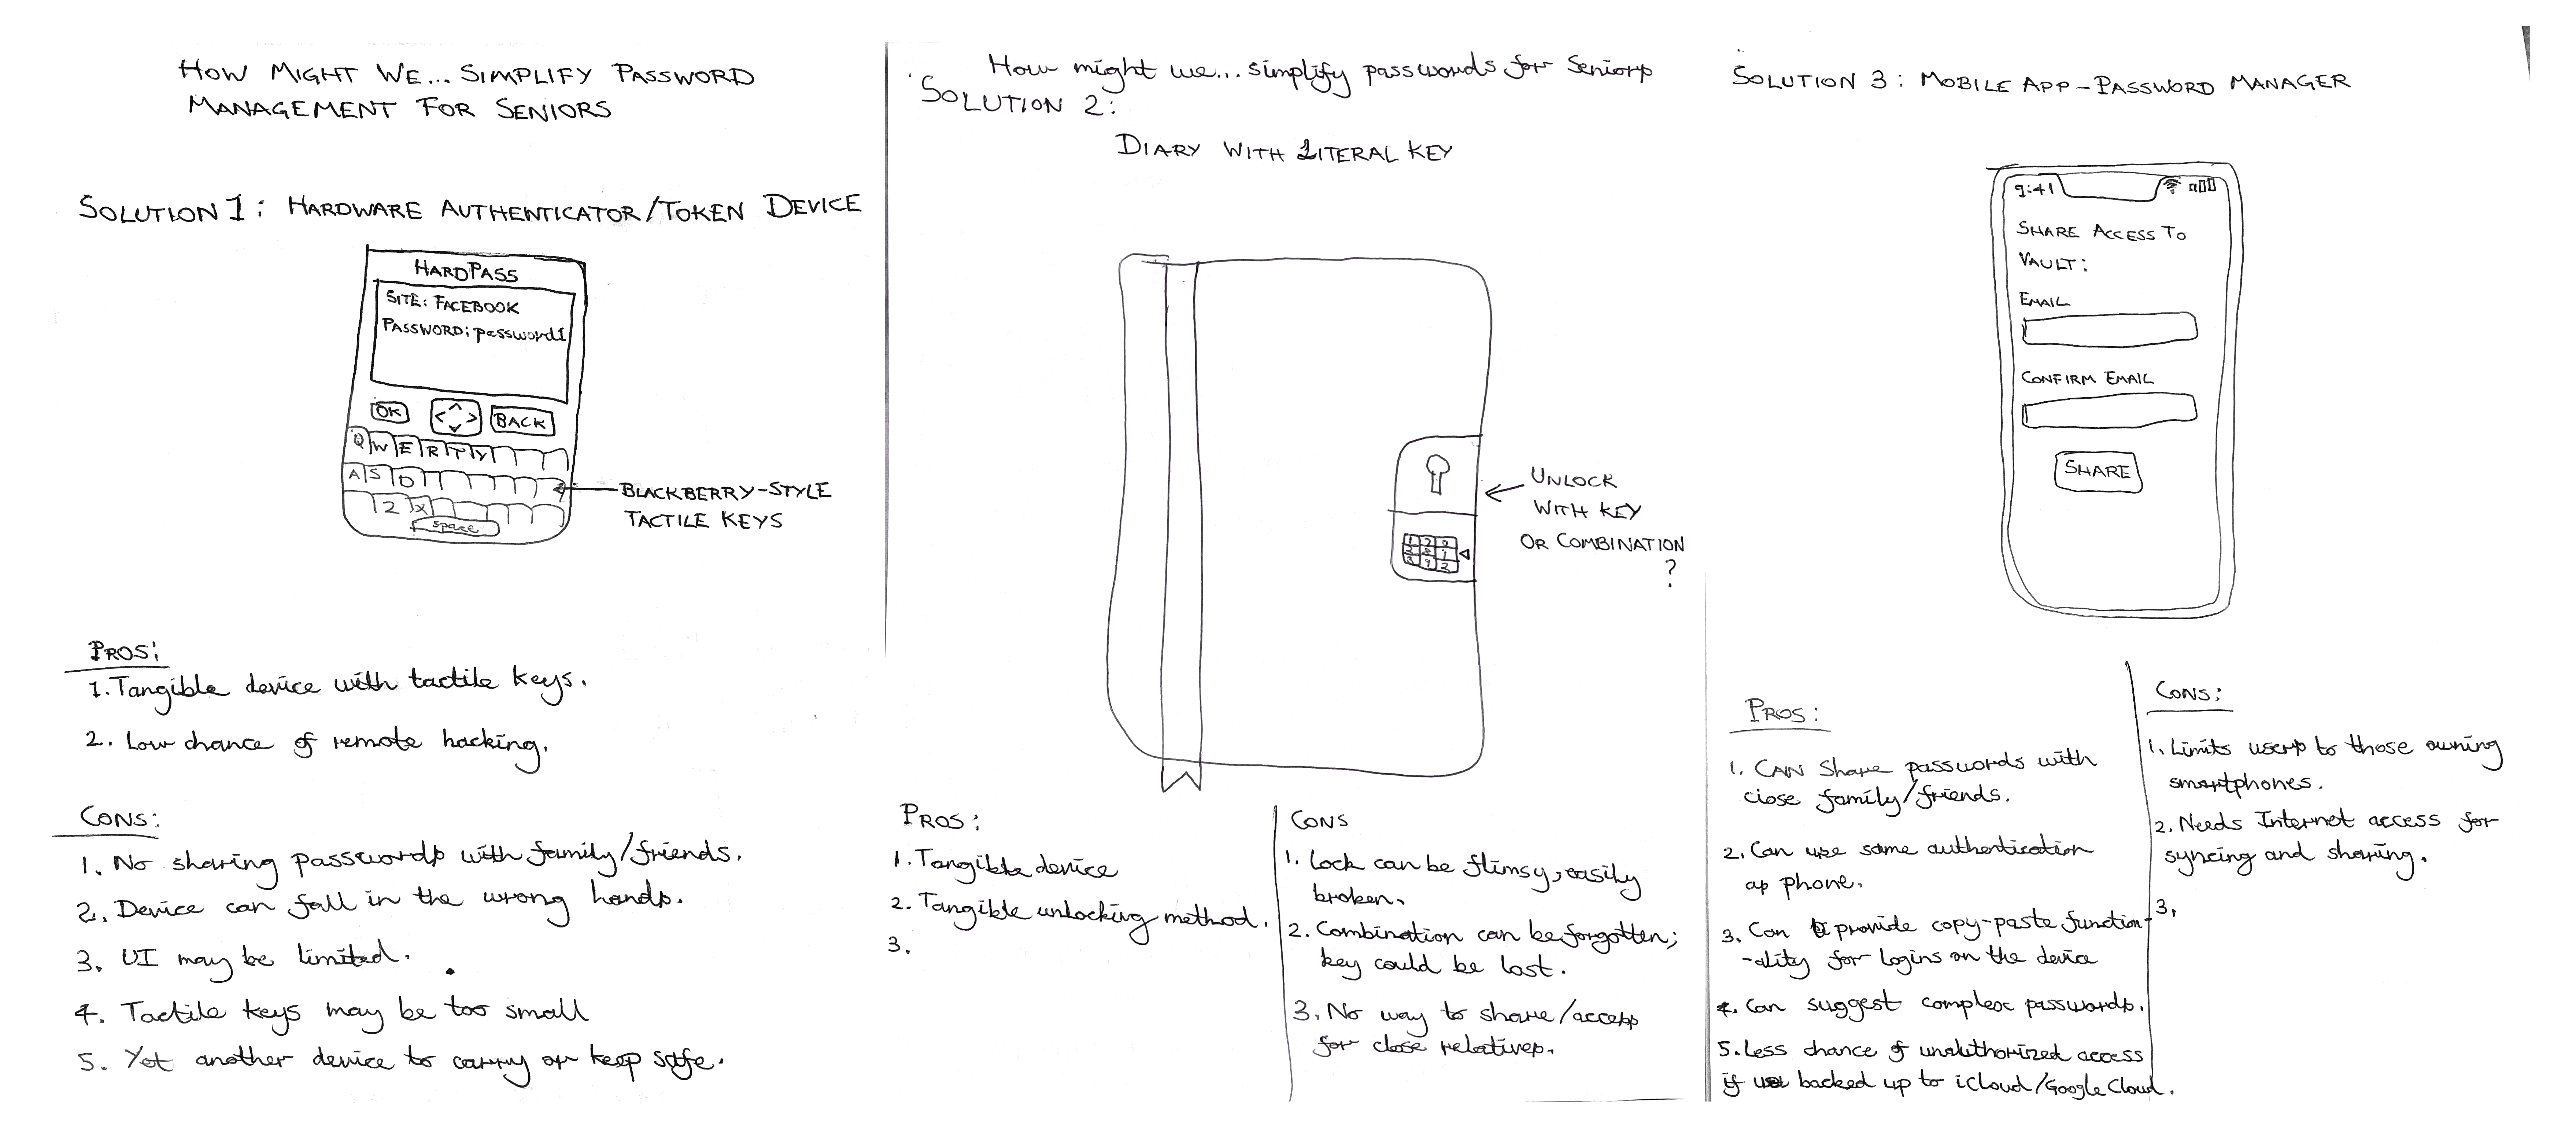 HOW MIGHT WE... SIMPLIFY PASSWORD
MANAGEMENT FOR SENIORS
SOLUTION 1: HARDWARE AUTHENTICATOR/TOKEN DEVICE
HARDPASS
SITE: FACEBOOK
PASSWORD: password1
OK
< >
BACK
Q W E R T Y
A S D
Z X
space
BLACKBERRY-STYLE
TACTILE KEYS
PROS:
1. Tangible device with tactile keys.
2. Low chance of remote hacking.
CONS:
1. No sharing passwords with family/friends.
2. Device can fall in the wrong hands.
3. UI may be limited.
4. Tactile keys may be too small
5. Yet another device to carry or keep safe.
How might we... simplify passwords for Seniors
SOLUTION 2:
DIARY WITH LITERAL KEY
UNLOCK
WITH KEY
OR COMBINATION
?
PROS:
1. Tangible device
2. Tangible unlocking method.
3.
CONS
1. Lock can be flimsy, easily
broken.
2. Combination can be forgotten;
key could be lost.
3. No way to share/access
for close relatives.
SOLUTION 3: MOBILE APP - PASSWORD MANAGER
9:41
SHARE ACCESS TO
VAULT:
EMAIL
CONFIRM EMAIL
SHARE
PROS:
1. CAN Share passwords with
close family/friends.
2. Can use same authentication
as phone.
3. Can provide copy-paste function
-ality for logins on the device
4. Can suggest complex passwords.
5. Less chance of unauthorized access
if backed up to iCloud/Google Cloud.
CONS:
1. Limits users to those owning
smartphones.
2. Needs Internet access for
syncing and sharing.
3.